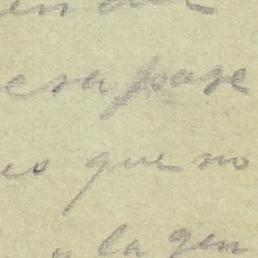 esa pase
es que no
y la gen